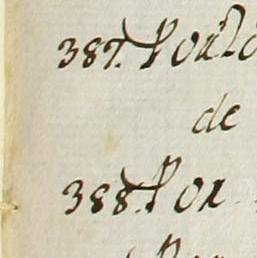 387. Por lo
de
388. Por